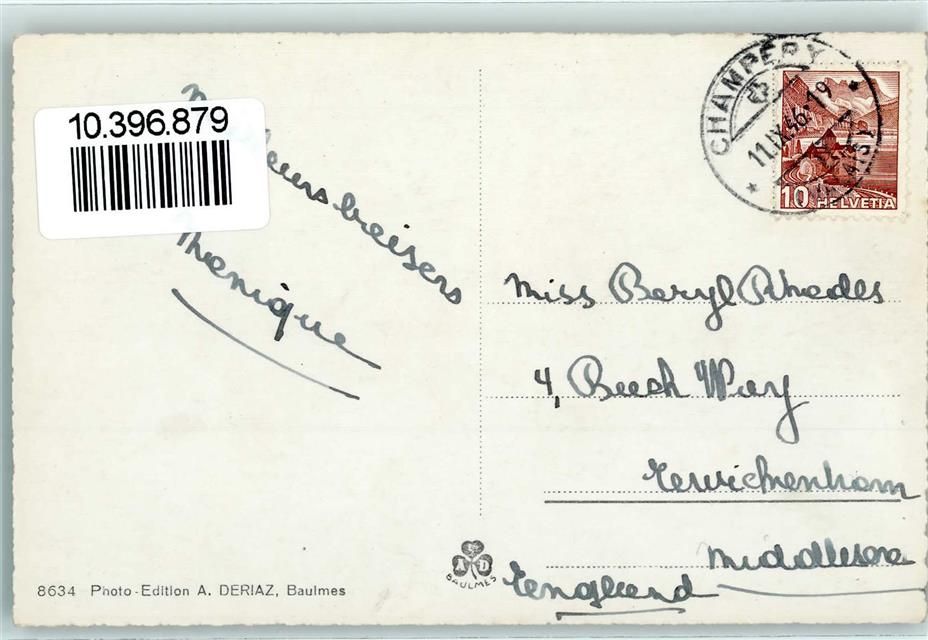 10.396.879
baisers
Monique
CHAMPÉRY
11.IX.46.-19
10 HELVETIA
Miss Beryl Rhodes
4, Beech Way
Twickenham
Middlesex
England
BAULMES
8634 Photo-Edition A. DERIAZ, Baulmes